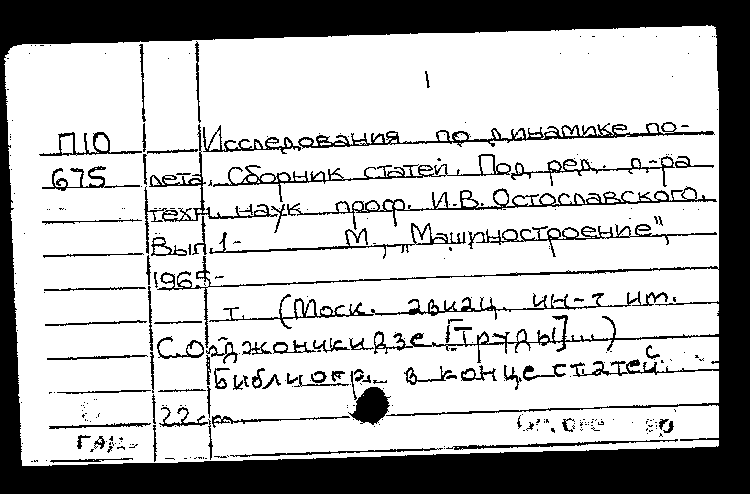 1
П10 Исследования по динамике по-
675 лета. Сборник статей. Под ред. д-ра
техн. наук проф. И.В. Остославского.
Вып.1- М., „Машиностроение",
1965-
т. (Моск. авиац. ин-т им.
С. Орджоникидзе. [Труды]...)
Библиогр. в конце статей.
22см.